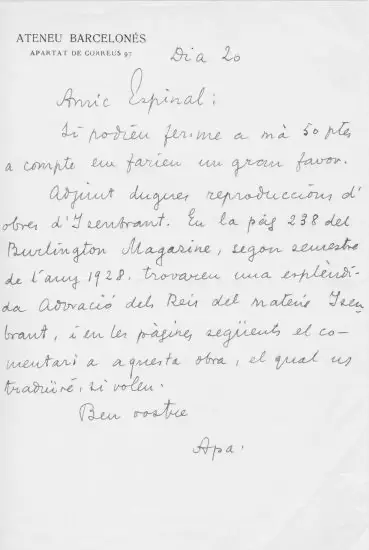 ATENEU BARCELONÉS
APARTAT DE CORREUS 97
Dia 20
Amic Espinal:
Si podíeu fer-me a mà 50 ptes
a compte em faríeu un gran favor.
Adjunt dugues reproduccions d'
obres d'Isenbrant. En la pàg 238 del
Burlington Magazine, segon semestre
de l'any 1928. trovareu una esplèndi-
da Adoració dels Reis del mateix Isen-
brant, i en les pàgines següents el co-
mentari a aquesta obra, el qual us
traduiré, si voleu.
Ben vostre
Apa.